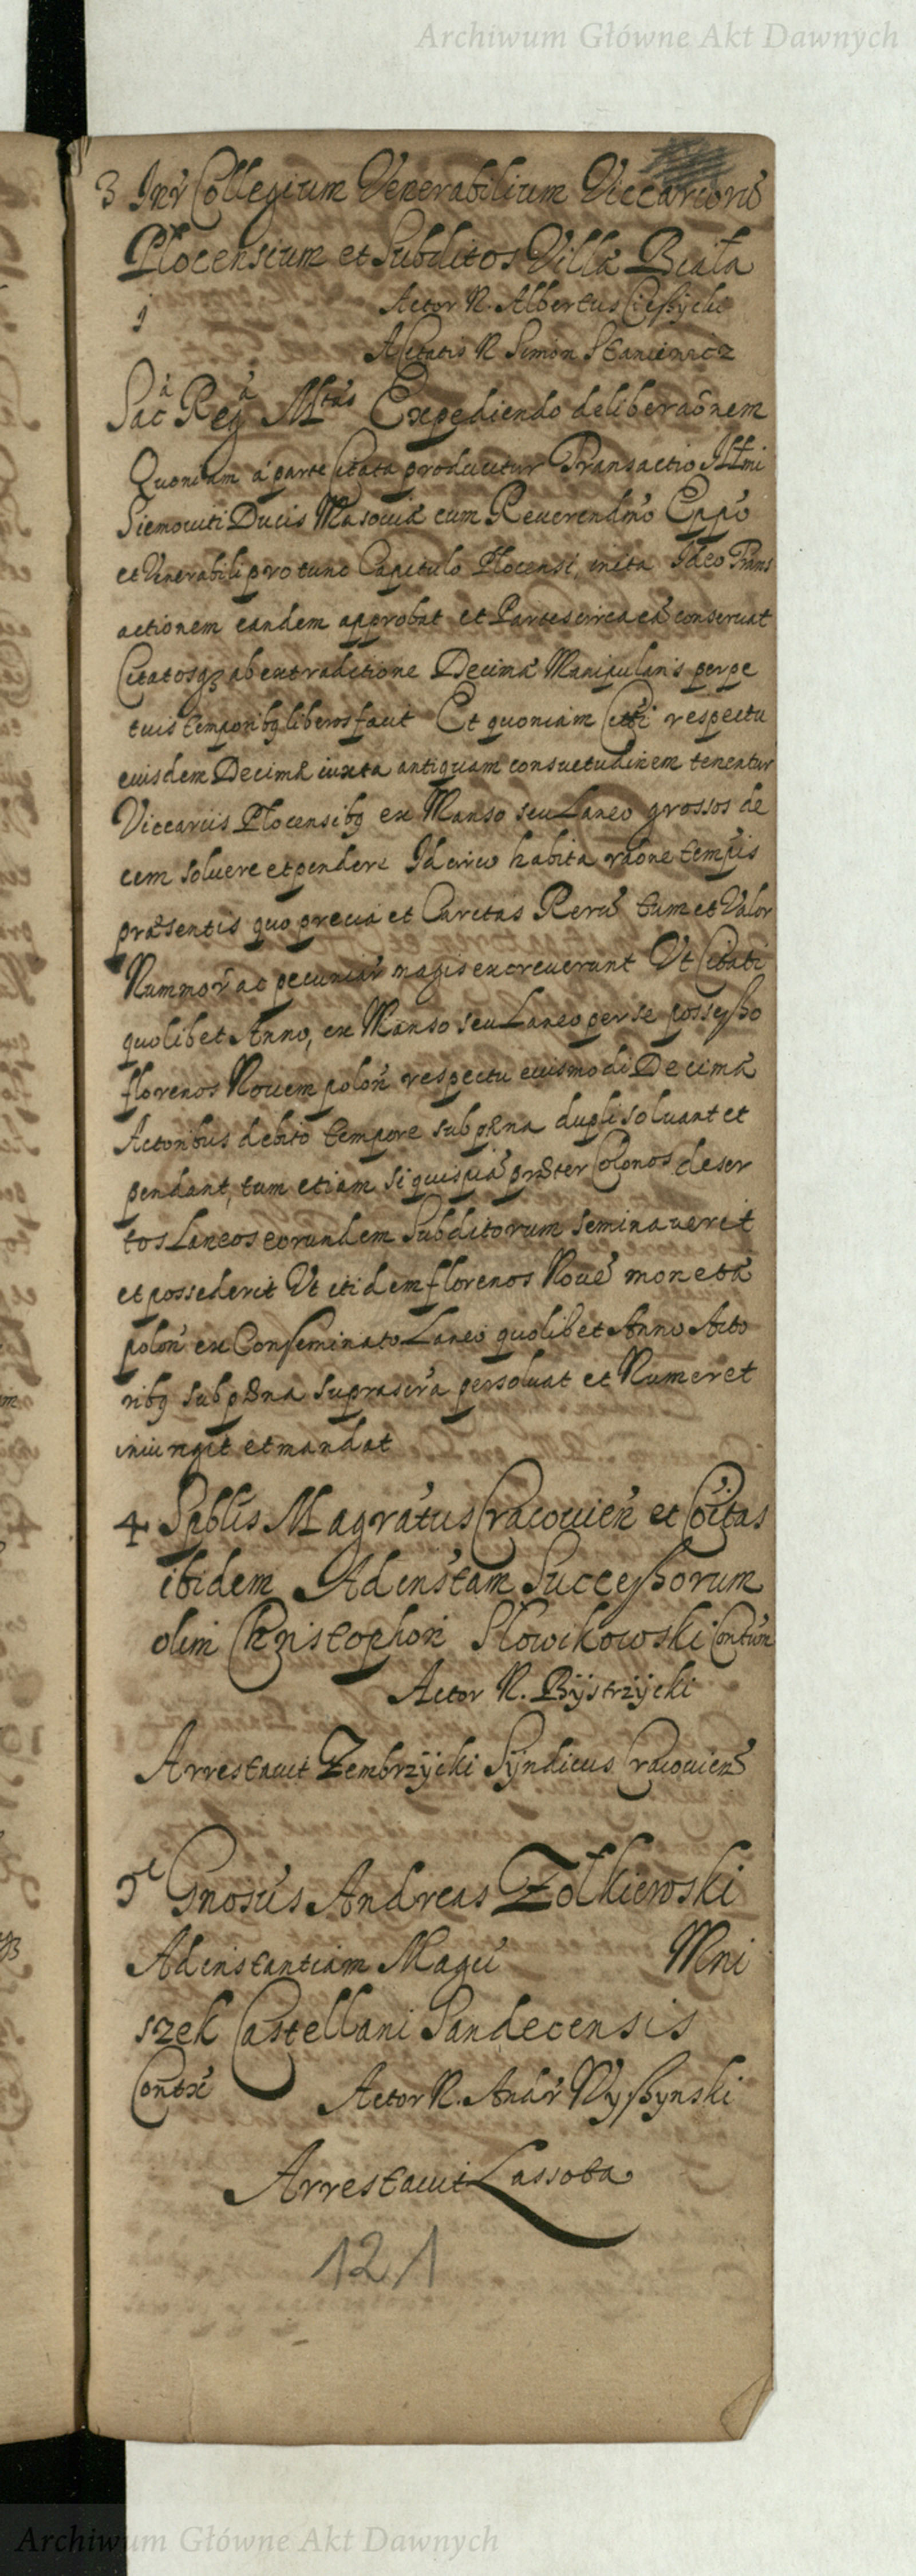 Archiwum Główne Akt Dawnych
3 Inr Collegium Venerabilium Viccariorũ
Plocensium et Subditos Villæ Biała
Actor N. Albertus Cieszycki
A Citatis N Simon Staniewicz
Sacᵃ Regᵃ Mᵗᵃˢ Expediendo deliberaõnem
Quoniam á parte Citata producitur Transactio Illmi
Siemouiti Ducis Masouiæ cum Reuerendmo Eppo
et Venerabili pro tunc Capitulo Plocensi, inita Ideo Trans
actionem eandem approbat et Partes circa eã conseruat
Citatosq; ab extraditione Decimæ Manipularis perpe
tuis temporibq liberos facit Et quoniam Citti respectu
euisdem Decimæ iuxta antiquam consuetudinem tenentur
Viccariis Plocensibq ex Manso seu Laneo grossos de
cem soluere et pendere Idcirco habita raõne tempis
præsentis quo precia et Caritas Rerũ tum et Valor
Nummor ac pecuniar magis excreuerunt Ut Citati
quolibet Anno, ex Manso seu Laneo per se possesso
florenos Nouem polon respectu euismodi Decimæ
Actoribus debito tempore sub pæna dupli soluant et
pendant, tum etiam si quispiã præter Colonos deser
tos Laneos eorundem Subditorum seminauerit
et possederit Ut itidem florenos Nouẽ monetæ
polon ex Conseminato Laneo quolibet Anno Acto
ribq sub pæna suprascra persoluat et Numeret
iniungit et mandat
4 Spblis Magratus Cracouien et Coitas
ibidem Ad instam Successorum
olim Christophori Słowikowski Contum
Actor N. Bystrzycki
Arrestauit Zembrzycki Syndicus Cracouien
5 Gnosus Andreas Zołkiewski
Ad instantiam Magci Mni
szek Castellani Sandecensis
Contx Actor N. Andr Wyszynski
Arrestauit Lassota
121
Archiwum Główne Akt Dawnych